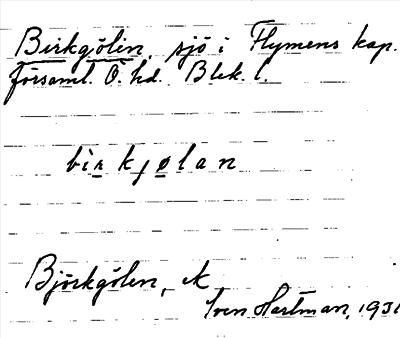 Birkgölin, sjö i Flymens kap.
församl. Ö. hd. Blek. l.
birkjølan
Björkgölen, EK
Sven Hartman, 1931